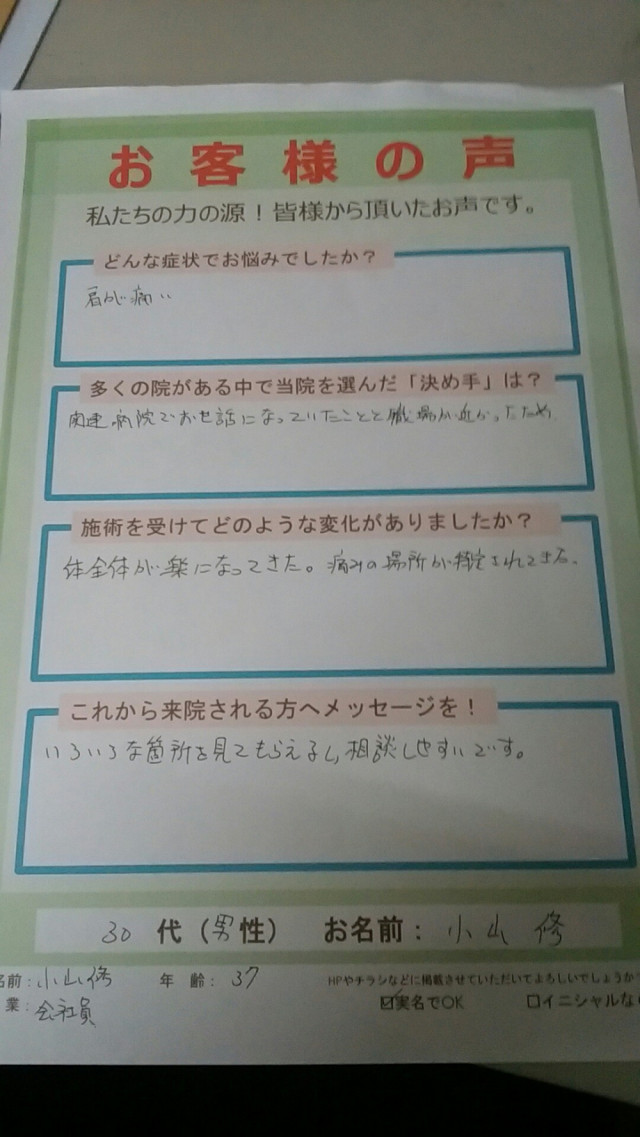 お客様の声
私たちの力の源！皆様から頂いたお声です。
どんな症状でお悩みでしたか？
肩が痛い
多くの院がある中で当院を選んだ「決め手」は？
関連病院でお世話になっていたことと職場が近かったため
施術を受けてどのような変化がありましたか？
体全体が楽になってきた。痛みの場所が特定されてきた。
これから来院される方へメッセージを！
いろいろな箇所を見てもらえるし、相談しやすいです。
30 代（男性） お名前： 小山 修
名前：小山修 年 齢： 37 HPやチラシなどに掲載させていただいてよろしいでしょうか
業：会社員 ☑実名でOK □イニシャルな